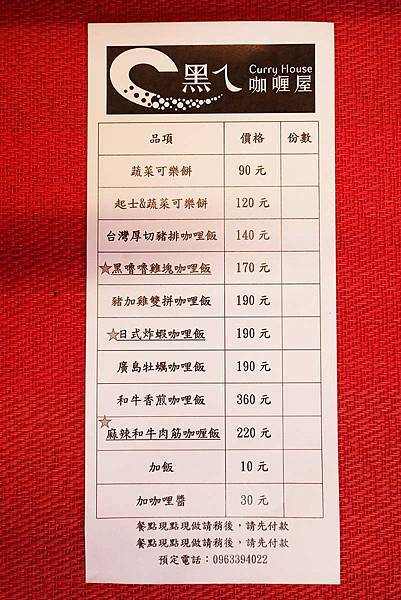 黑ㄟ Curry House
咖喱屋
品項 價格 份數
蔬菜可樂餅 90 元
起士&蔬菜可樂餅 120 元
台灣厚切豬排咖哩飯 140 元
☆黑嚕嚕雞塊咖哩飯 170 元
豬加雞雙拼咖哩飯 190 元
☆日式炸蝦咖哩飯 190 元
廣島牡蠣咖哩飯 190 元
和牛香煎咖哩飯 360 元
☆麻辣和牛肉筋咖喱飯 220 元
加飯 10 元
加咖哩醬 30 元
餐點現點現做請稍後，請先付款
餐點現點現做請稍後，請先付款
預定電話：0963394022